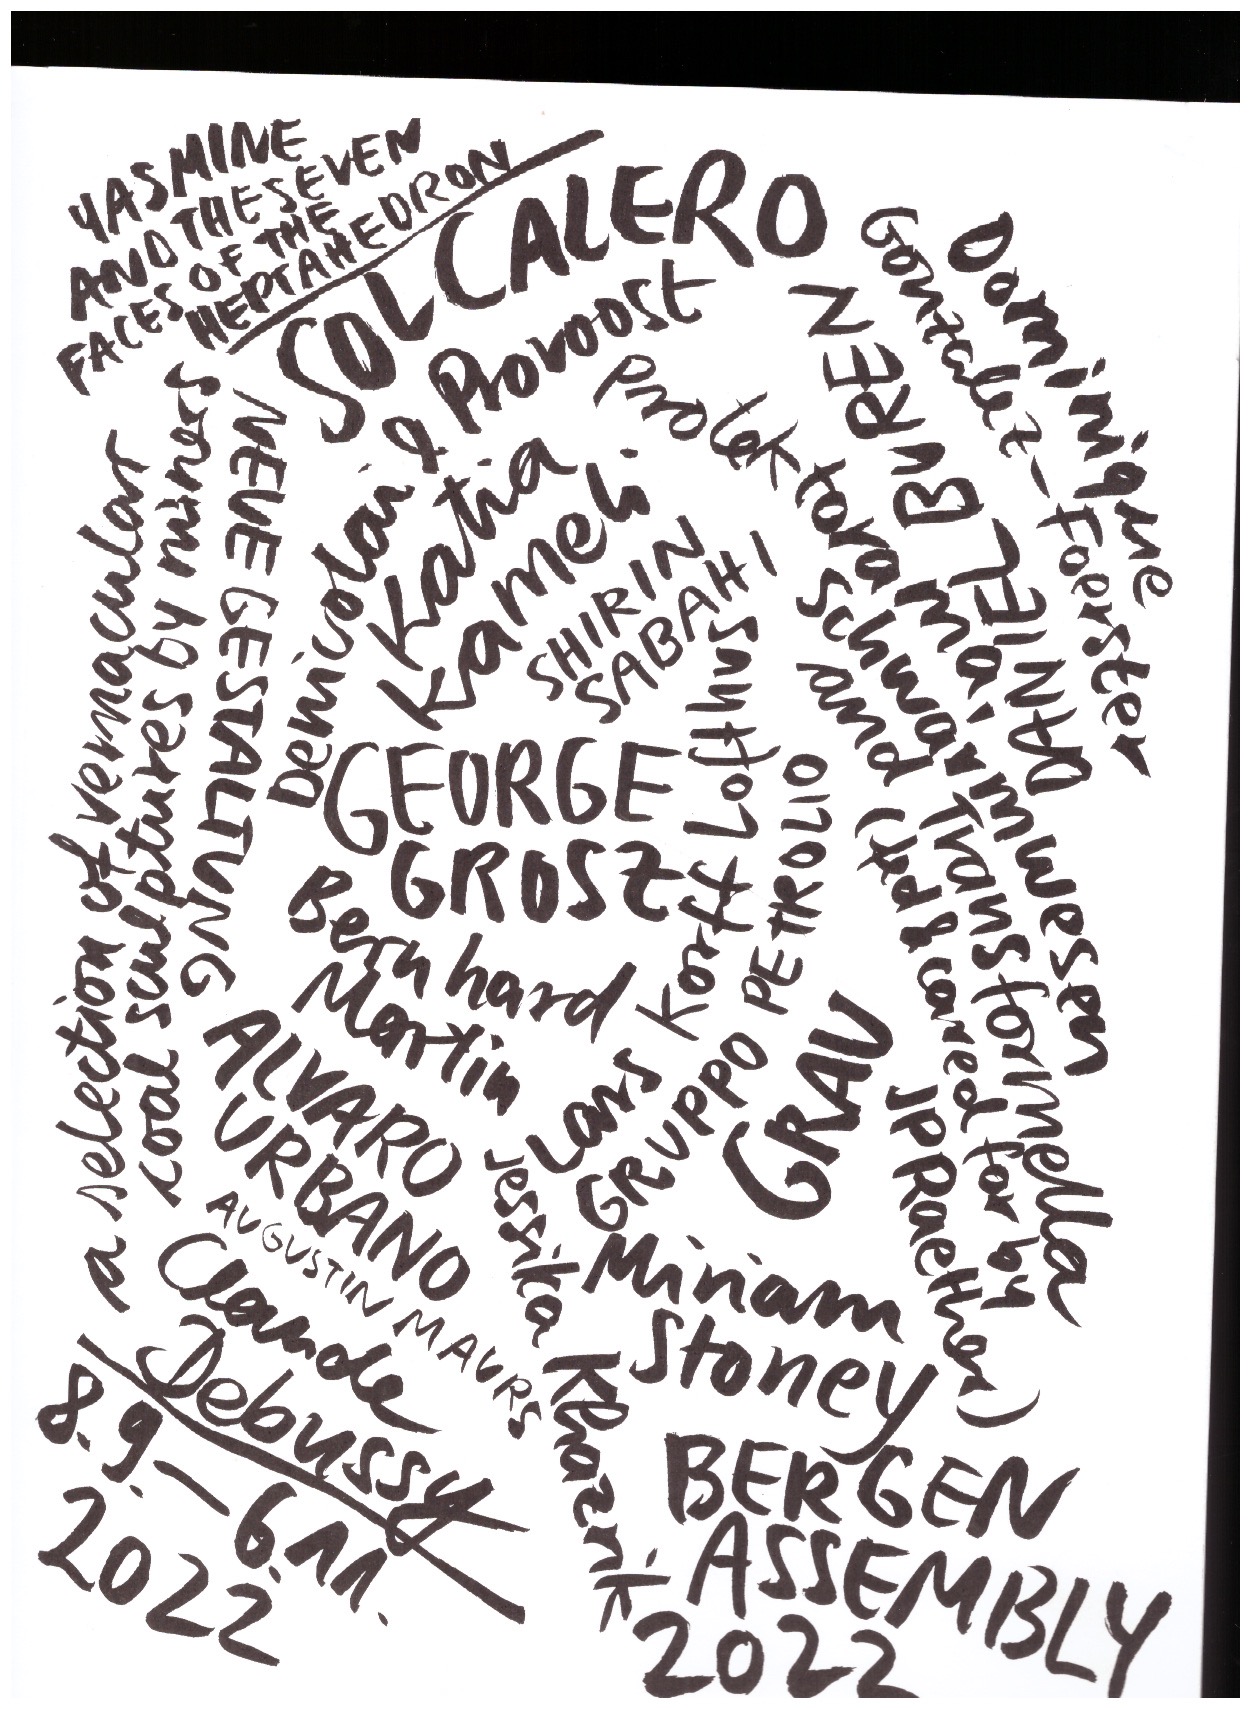 YASMINE
AND THE SEVEN
FACES OF THE
HEPTAHEDRON
SOL CALERO
Dominique
Gonzalez-Foerster
DANIEL BUREN
Denicolai & Provoost
Katia
Kameli
SHIRIN
SABAHI
Prolektorama'
Schwarmwesen
and Transformella
(fed & cared for by
JP Raether)
NEUE GESTALTUNG
a selection of vernacular
coal sculptures by miners
GEORGE
GROSZ
Lars Korff Lofthus
GRUPPO PETROLIO
GRAU
Bernhard
Martin
ALVARO
URBANO
AUGUSTIN MAURS
Claude
Debussy
Jessika Khazrik
Miriam
Stoney
8.9.–6.11.
2022
BERGEN
ASSEMBLY
2022